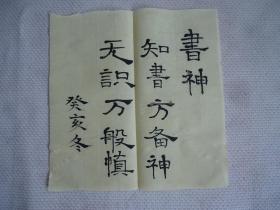 書神
知書方备神
无識万般慎
癸亥冬